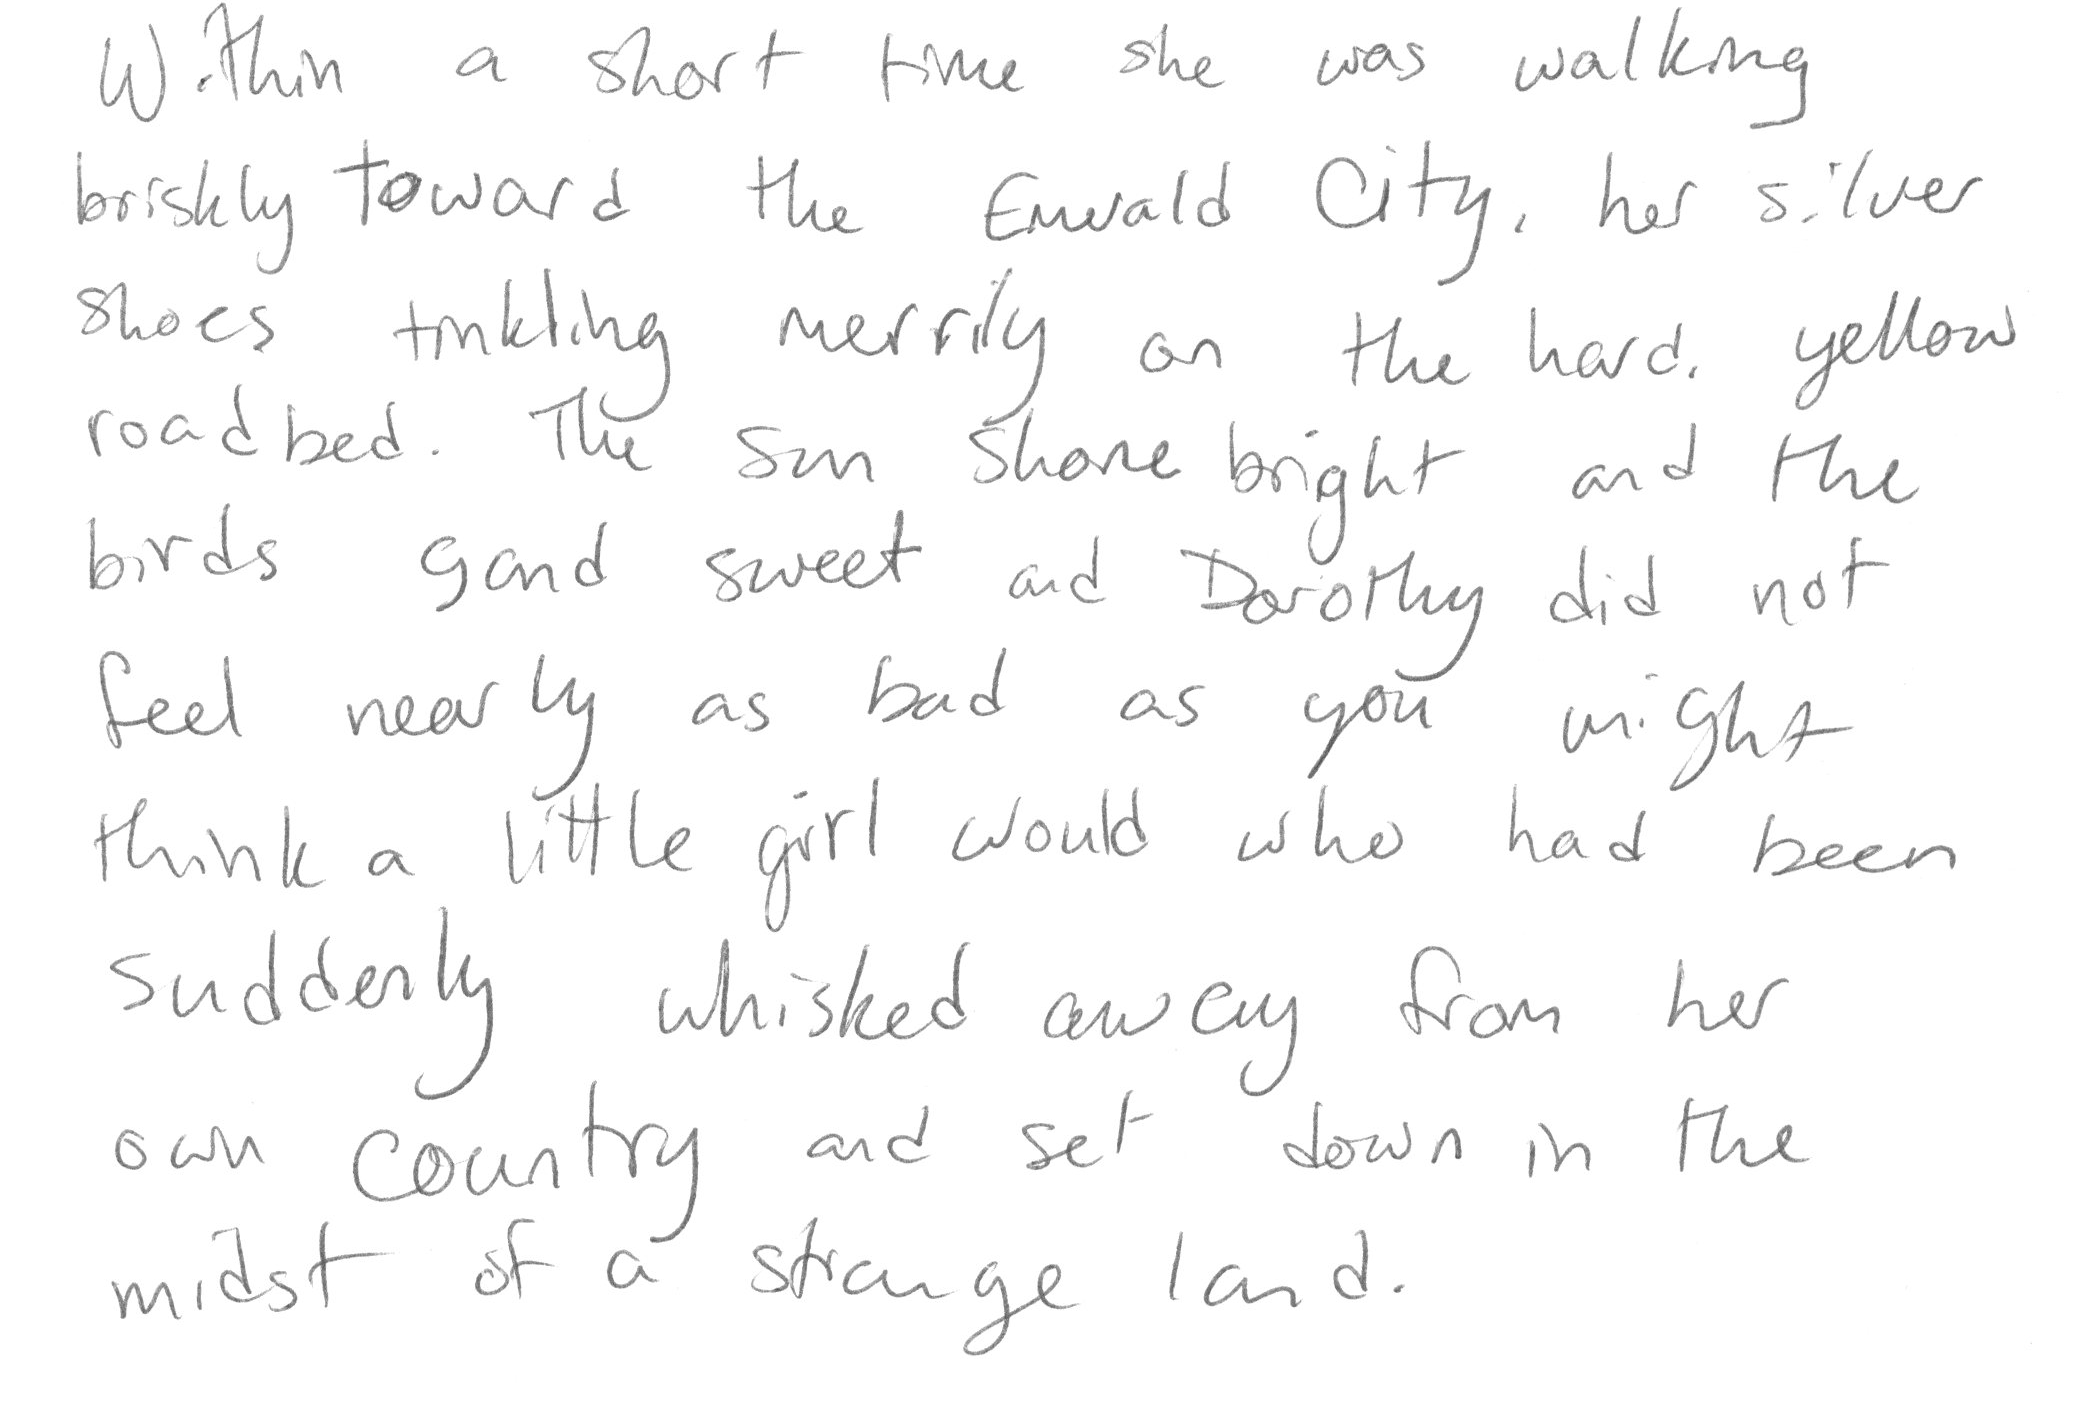 Within a short time she was walking
briskly toward the Emerald City, her silver
shoes tinkling merrily on the hard, yellow
roadbed. The sun shone bright and the
birds sand sweet and Dorothy did not
feel nearly as bad as you might
think a little girl would who had been
suddenly whisked away from her
own country and set down in the
midst of a strange land.